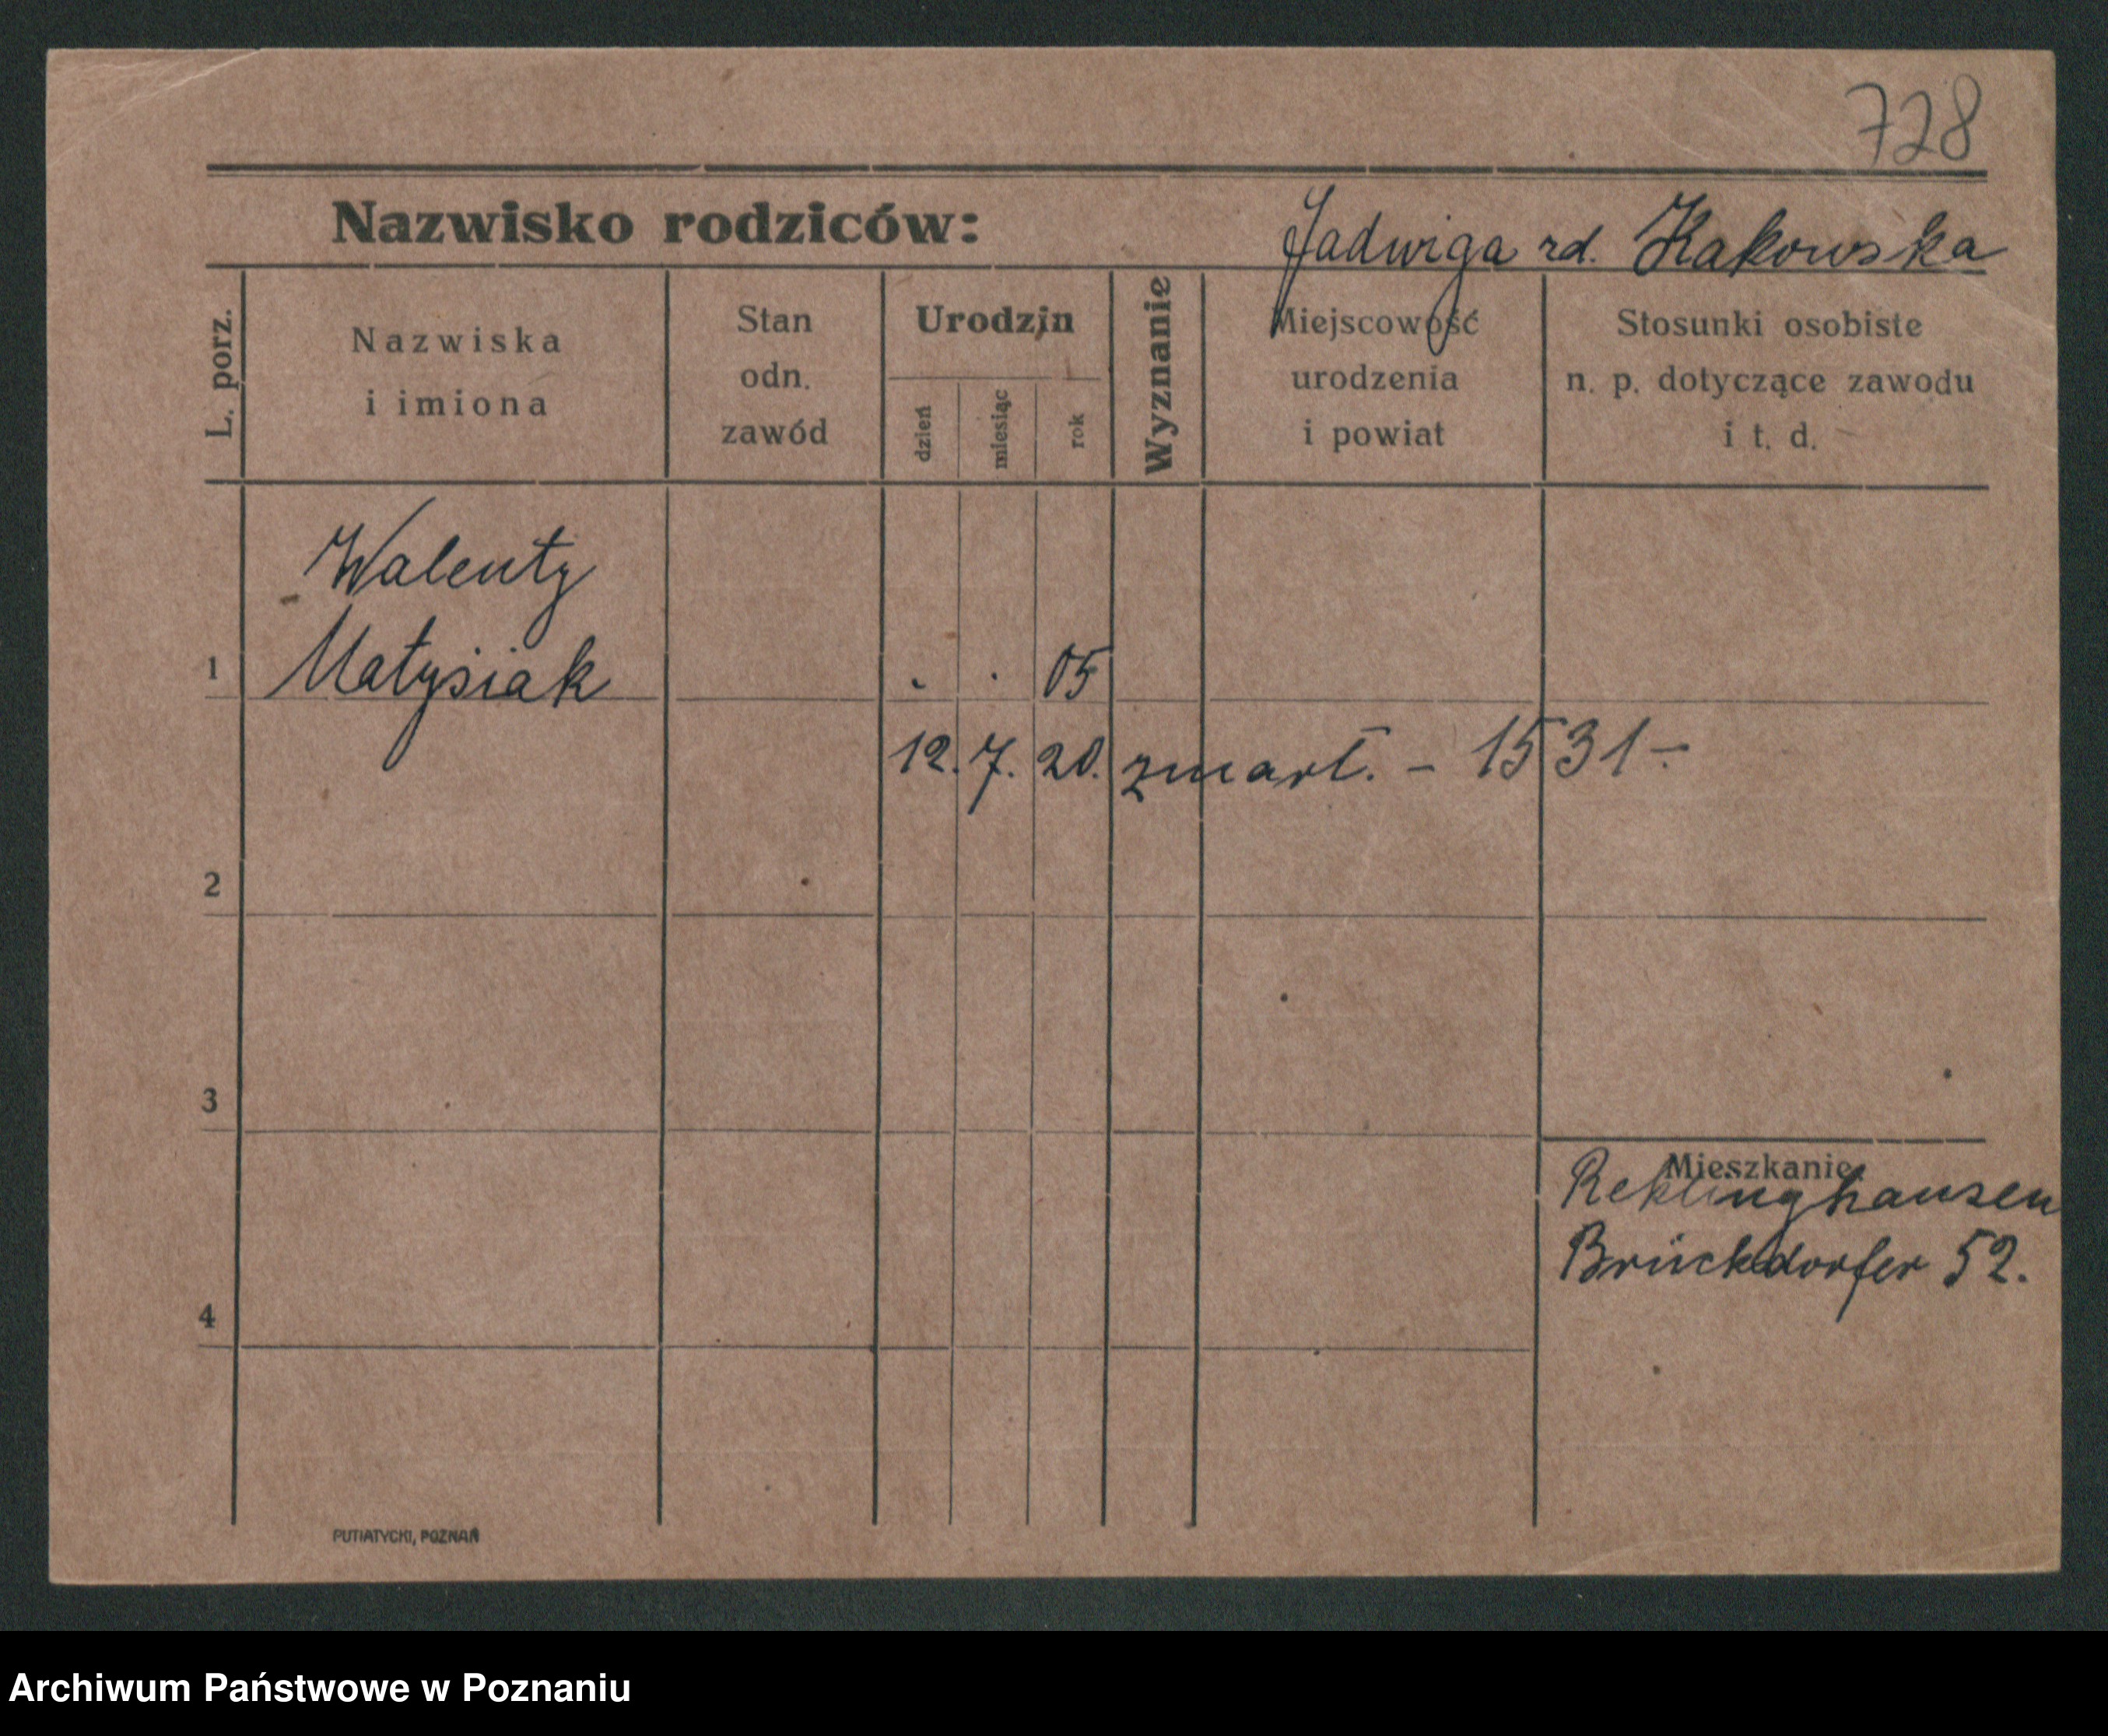 728
Nazwisko rodziców: Jadwiga rd. Kakowska
L. porz.
Nazwiska
i imiona
Stan
odn.
zawód
Urodzin
dzień
miesiąc
rok
Wyznanie
Miejscowość
urodzenia
i powiat
Stosunki osobiste
n. p. dotyczące zawodu
i t. d.
Walenty
1 Matysiak . . 05
12. 7. 20. zmarł. - 1531 -
2
3
Mieszkanie
Reklinghausen
Brückdorfer 52.
4
PUTIATYCKI, POZNAŃ
Archiwum Państwowe w Poznaniu